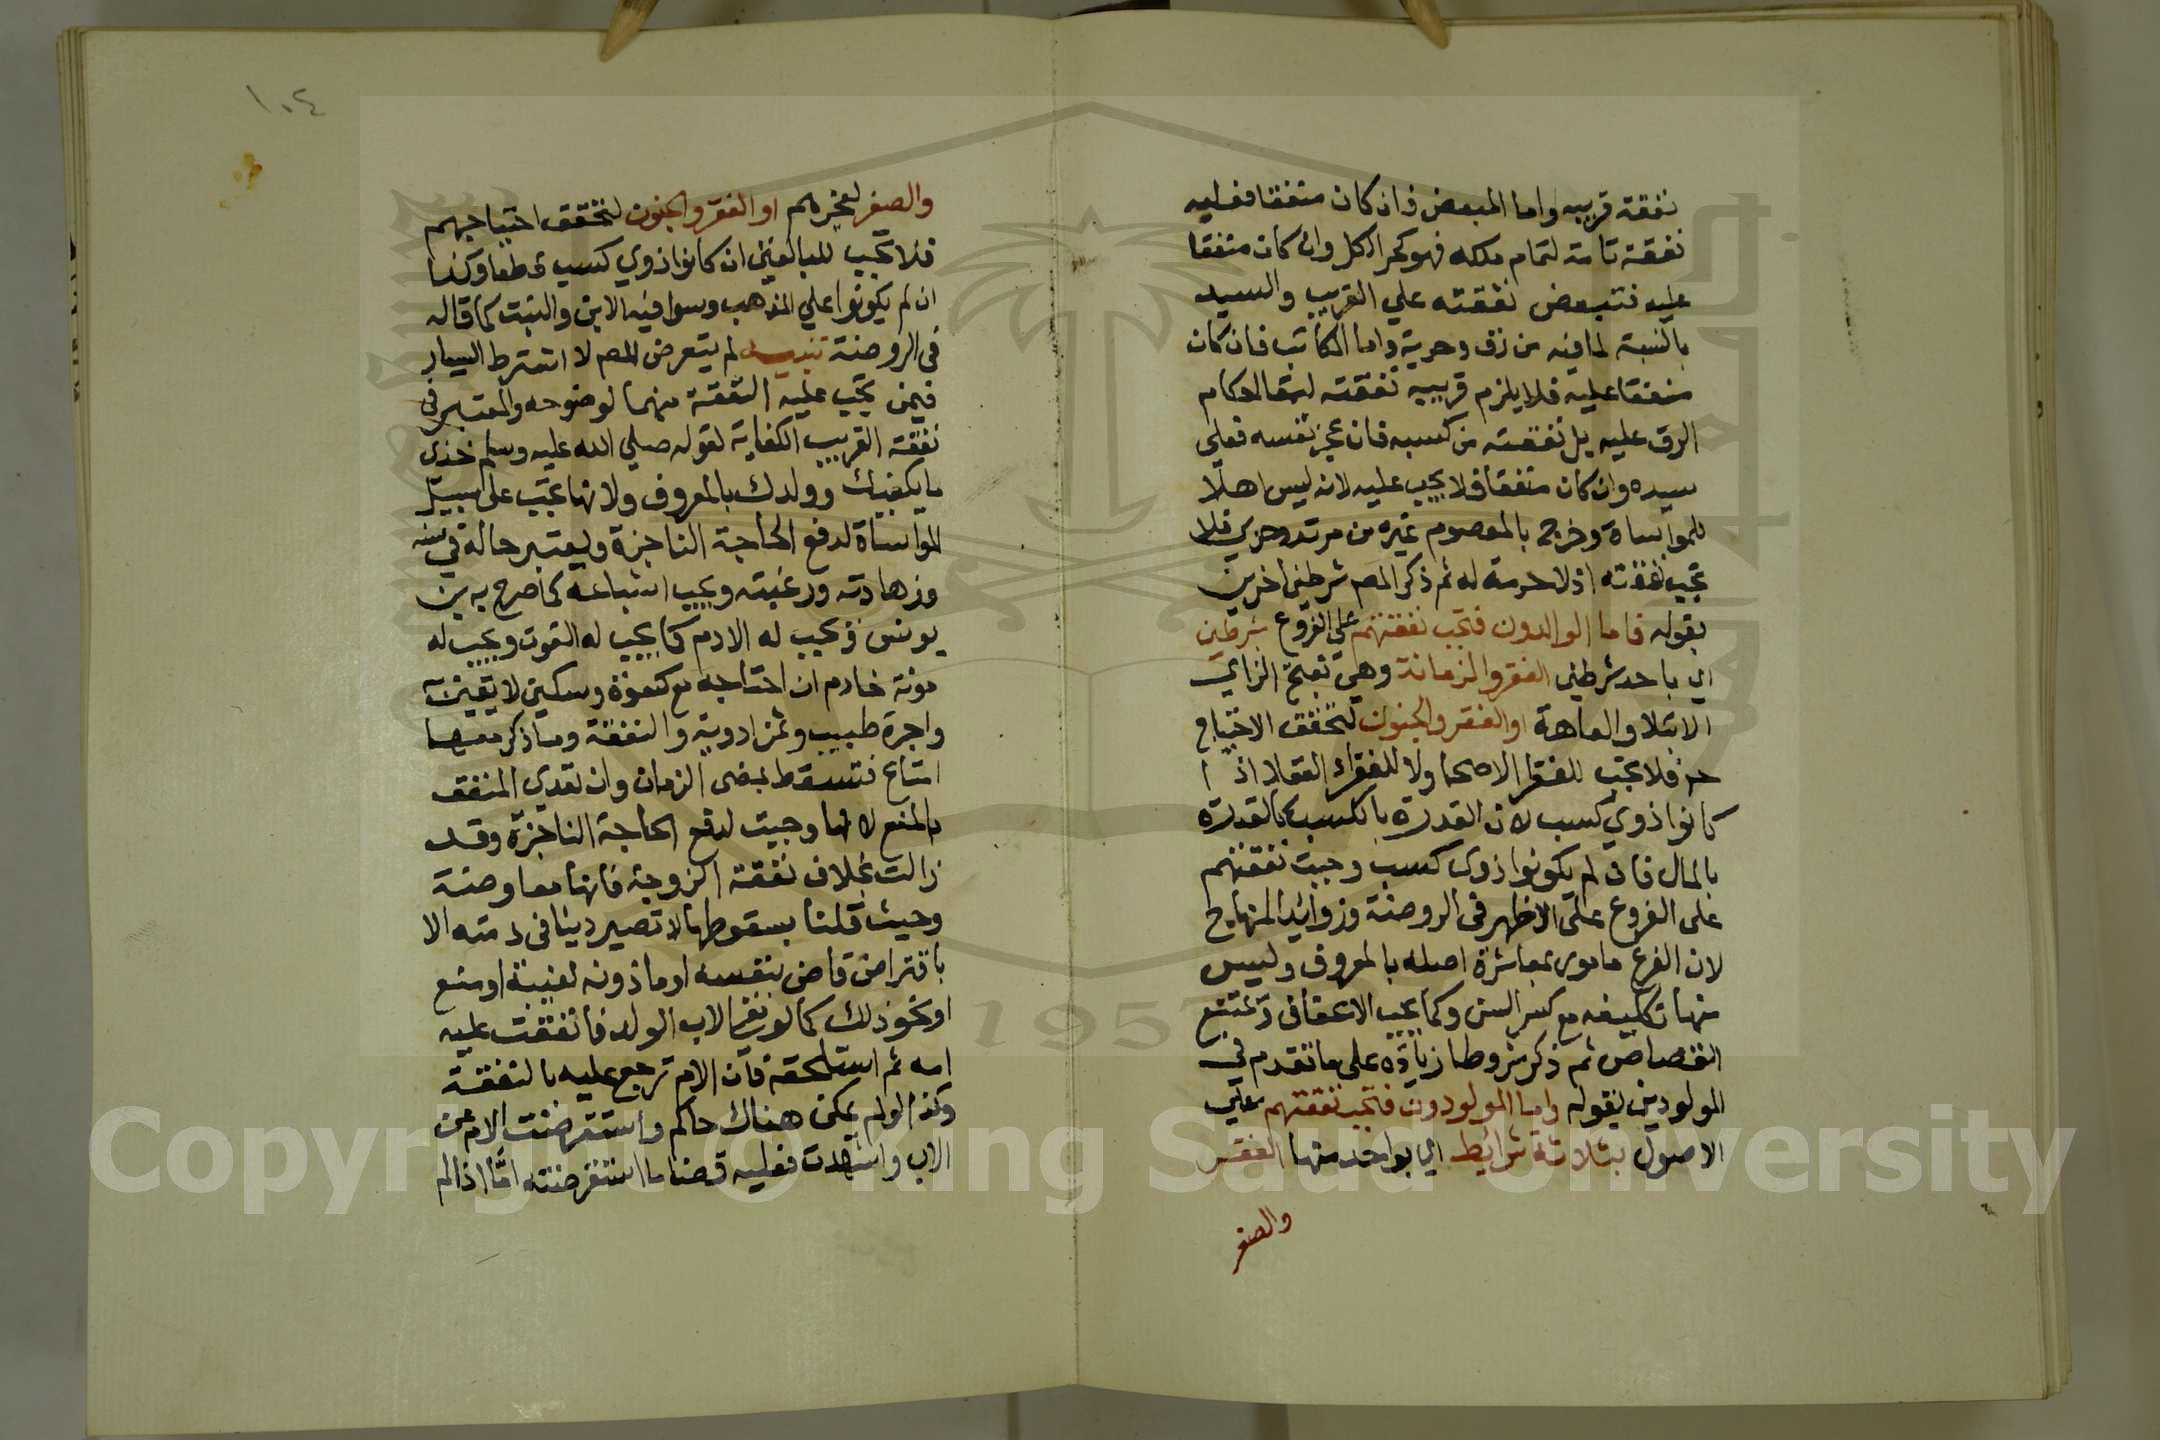 نفقة قريبه واما المبعض فان كان منفقا فعليه
نفقة تامة لتمام ملكه فهو كحر الكل وان كان منفقا
عليه فتبعض نفقته علي القريب والسيد
بالنسبة لما فيه من رق وحرية واما المكاتب فان كان
منفقا عليه فلا يلزم قريبه نفقته لبقا احكام
الرق عليه بل نفقته من كسبه فان عجز نفسه فعلى
سيده وان كان منفقا فلا يجب عليه لانه ليس اهلا
للمواساة وخرج بالمعصوم غيره من مرتد وحربي فلا
تجب نفقته اذ لا حرمة له ثم ذكر المص شرطين اخرين
بقوله فاما الوالدون فتجب نفقتهم علي الفروع بشرطين
اي باحد شرطين الفقر والزمانة وهي بفتح الزاي
الابتلا والعاهة او الفقر والجنون لتحقق الاحتياج
ح فلا تجب للفقرا الاصحا ولا للفقراء العقلا اذا
كانوا ذوي كسب لان القدرة بالكسب كالقدرة
بالمال فان لم يكونوا ذوى كسب وجبت نفقتهم
على الفروع على الاظهر فى الروضة وزوائد المنهاج
لان الفرع مامور بمعاشرة اصله بالمعروف وليس
منها تكليفه مع كبر السن وكما يجب الاعفاف ويمتنع
القصاص ثم ذكر شروطا زيادة على ما تقدم في
المولودين بقوله واما المولودون فتجب نفقتهم علي
الاصول بثلاثة شرائط اي بواحد منها الفقر
والصغر
١٠٤
والصغر لعجزهم او الفقر والجنون لتحقق احتياجهم
فلا تجب للبالغين ان كانوا ذوي كسب قطعا وكذا
ان لم يكونوا علي المذهب وسوا فيه الابن والبنت كما قاله
فى الروضة تنبيه لم يتعرض المص لا اشترط اليسار
فيمن تجب عليه النفقة منهما لوضوحه والمعتبر فى
نفقة القريب الكفاية لقوله صلي الله عليه وسلم خذى
ما يكفيك وولدك بالمعروف ولانها تجب على سبيل
المواساة لدفع الحاجة الناجزة ويعتبر حاله في سنه
وزهادته ورغبته ويجب اشباعه كما صرح به بن
يونس ويجب له الادم كما يجب له القوت ويجب له
مونة خادم ان احتاجه مع كسوة وسكنى لايقين
واجرة طبيب وثمن ادوية والنفقة وما ذكر معها
امتاع فتسقط بمضى الزمان وان تعدى المنفق
بالمنع لانها وجبت لدفع الحاجة الناجزة وقد
زالت بخلاف نفقة الزوجة فانها معاوضة
وحيث قلنا بسقوطها لا تصير دينا فى ذمته الا
باقتراض قاض بنفسه او ماذونه لغيبة او منع
او نحو ذلك كما لو نفى الاب الولد فانفقت عليه
امه ثم استلحقه فان الام ترجع عليه بالنفقة
وكذا لو لم يكن هناك حاكم واستقرضت الام عن
الاب واشهدت فعليه قضا ما استقرضته اما اذا لم
Copyright © King Saud University
1957